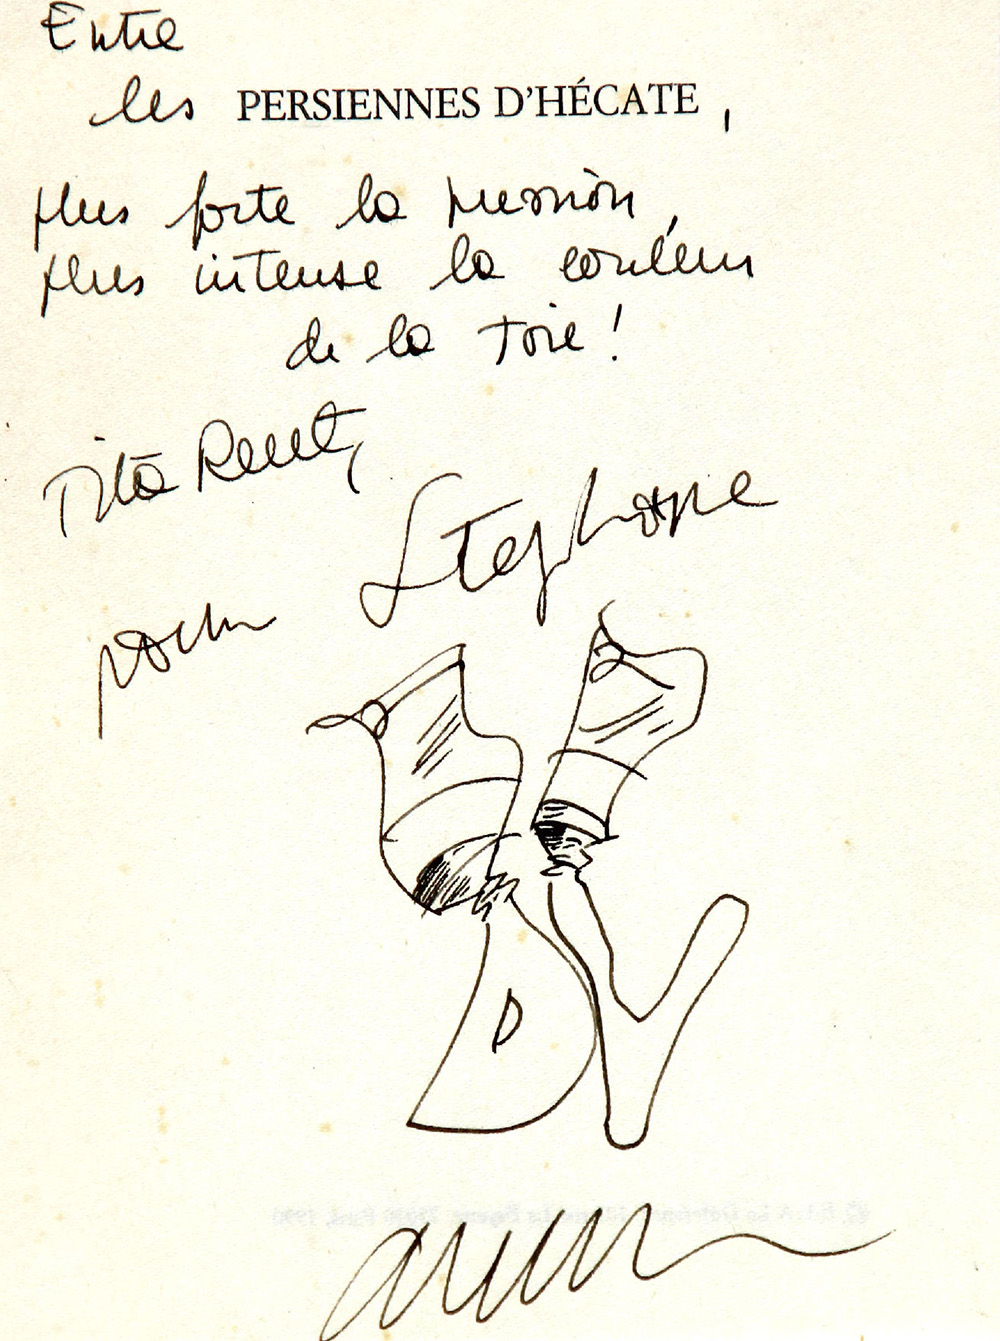 Entre
les PERSIENNES D'HÉCATE,
plus forte la pression,
plus intense la couleur
de la Toie!
Tita Reut,
pour Stephane
D V